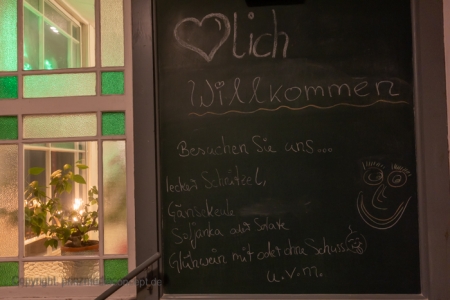 lich
Willkommen
Besuchen Sie uns...
lecker Schnitzel,
Gänsekeule
Soljanka aus Solave
Glühwein mit oder ohne Schuss
u.v.m.
Copyright